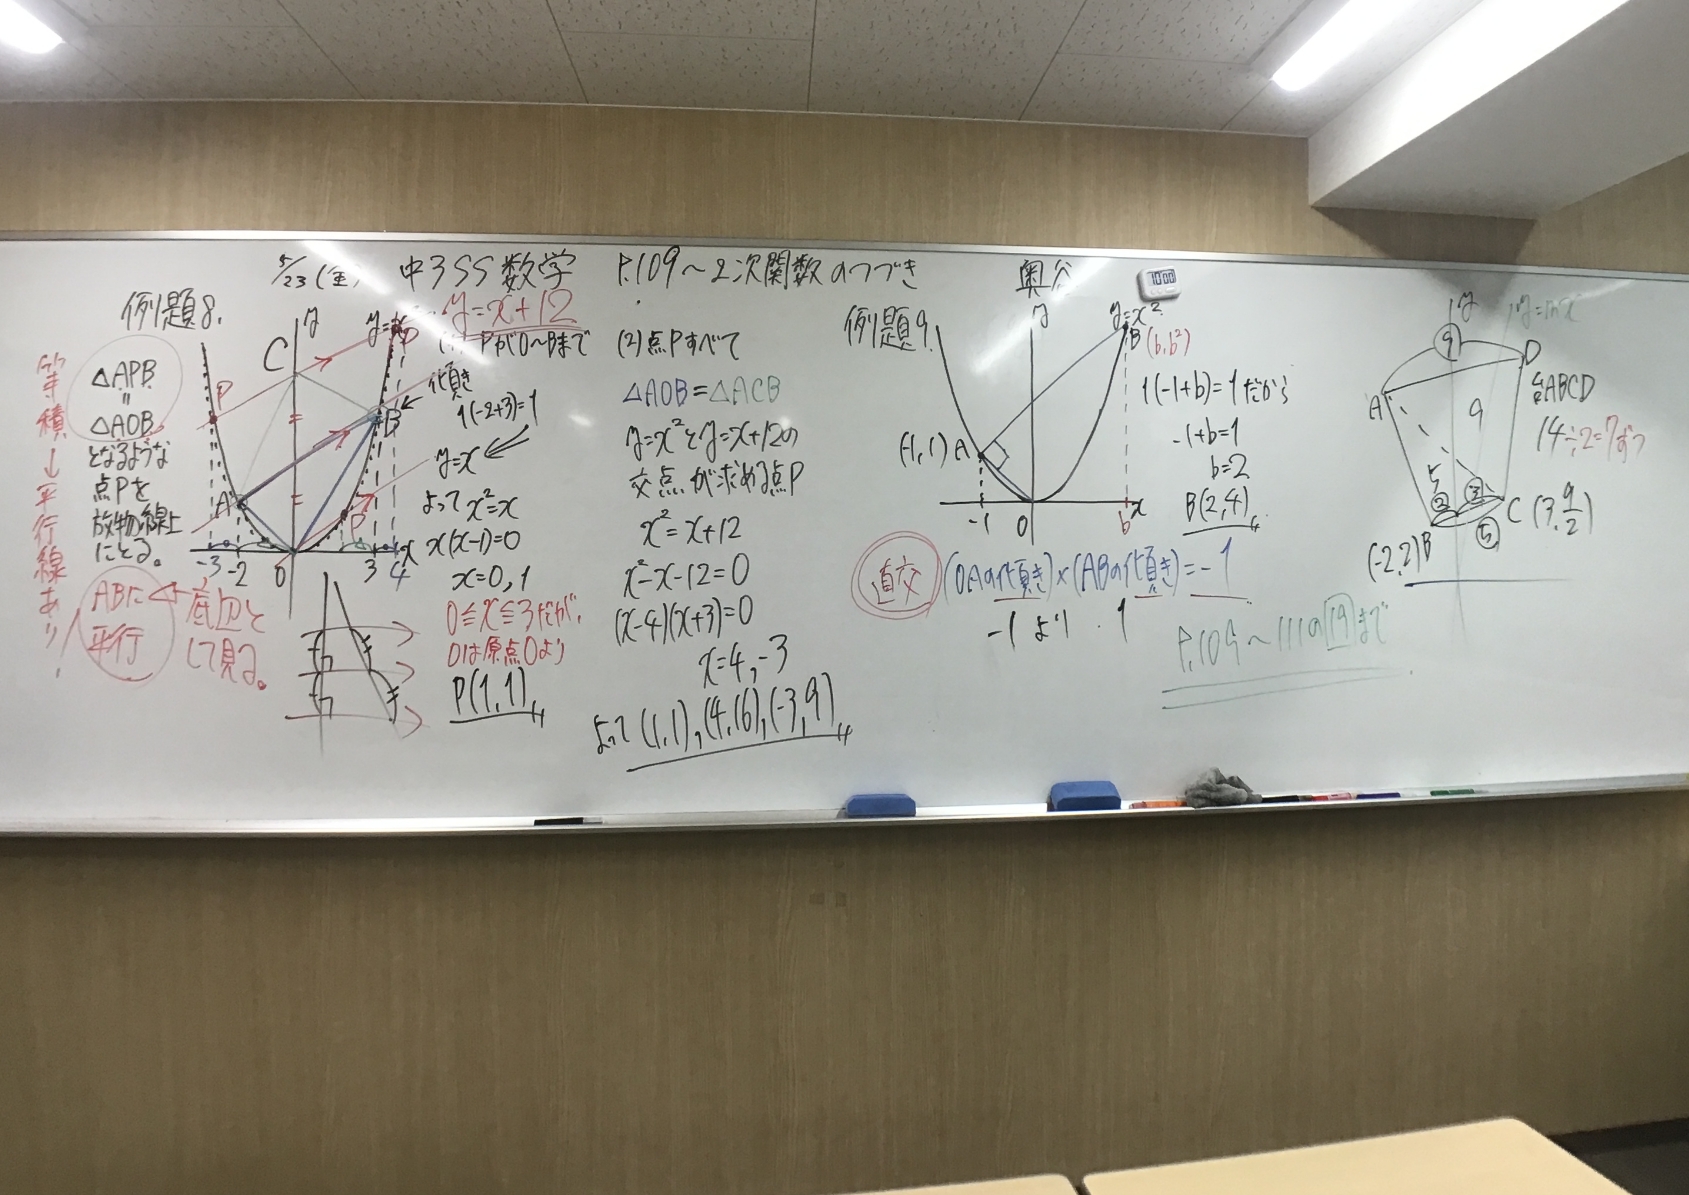 5/23(金) 中3SS 数学 P.109〜2次関数のつづき 奥谷
例題8.
△APB
=
△AOB
となるような
点Pを
放物線上
にとる。
等積→平行線あり!
ABに
平行
底辺と
して見る。
y
C
P
A
B
P
-3
-2
0
3
4
x
y=x+12
(1)Pが0〜Bまで
傾き
1(-2+3)=1
y=x
よって x²=x
x(x-1)=0
x=0,1
0≦x≦3だが、
0は原点Oより
P(1,1)
(2)点Pすべて
△AOB=△ACB
y=x²とy=x+12の
交点が求める点P
x²=x+12
x²-x-12=0
(x-4)(x+3)=0
x=4,-3
よって(1,1),(4,16),(-3,9)
例題9.
y
y=x²
B(b,b²)
(-1,1)A
-1
0
b
x
1(-1+b)=1だから
-1+b=1
b=2
B(2,4)
直交
(OAの傾き)×(ABの傾き)=-1
-1より
1
P.109〜111の19まで
10:00
y
y=mx
9
D
A
9
5
2
3
5
C(3,9/2)
(-2,2)B
ABCD
14÷2=7ずつ